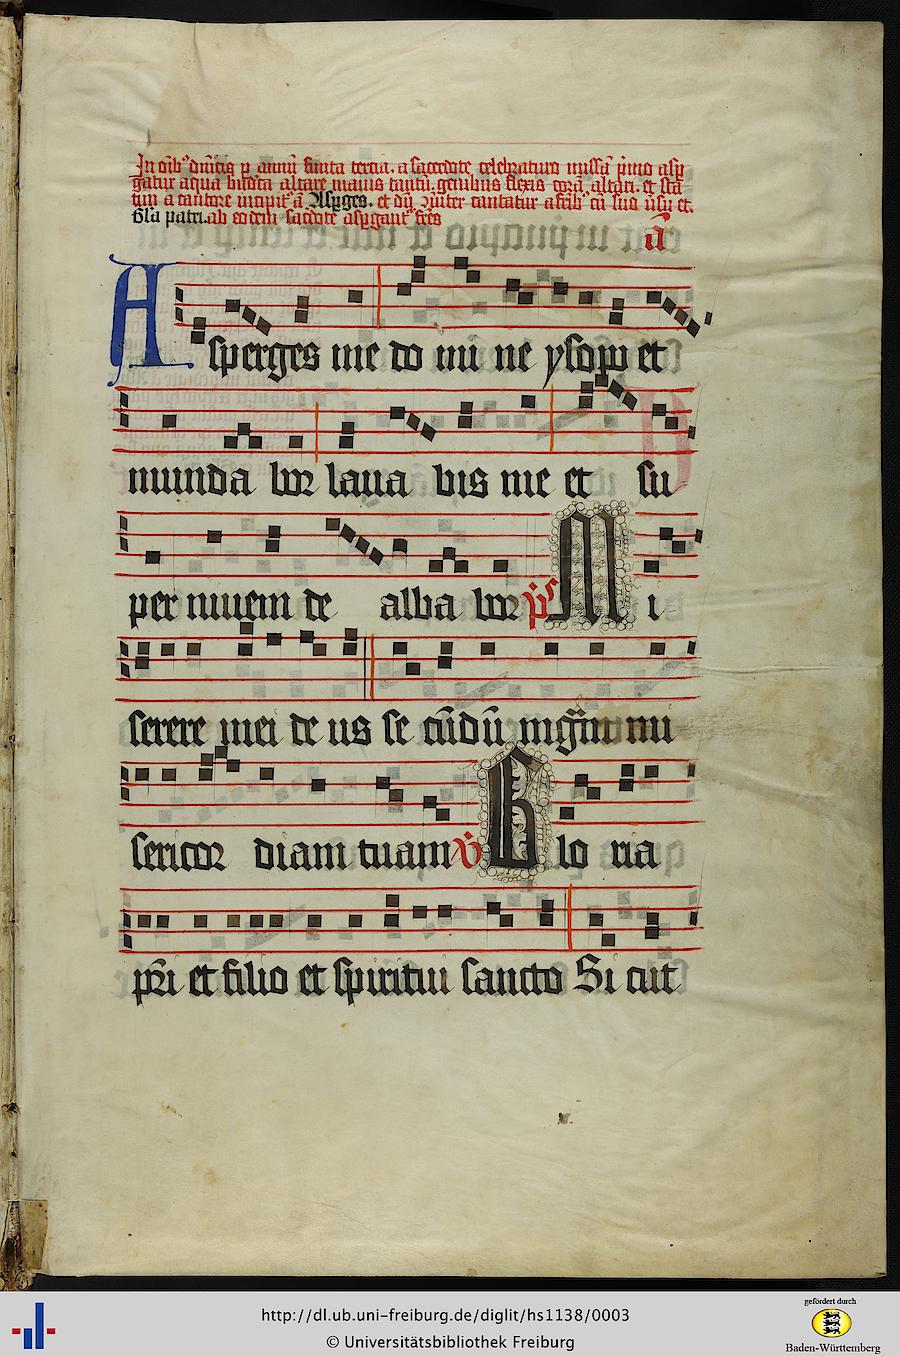 In oib⁹ dnicis p annu finita tercia. a sacerdote celebraturo missa pmo asp
gatur aqua bndcta altare maius tantu. genibus flexis cora altari. et sta
tim a cantore incipit᷑ ā Asperges. et dū cantatur cū suo ūsu et.
Gla patri. ab eodem sacdote aspgant᷑ fres
ā
Asperges me do mi ne ysopo et
munda bor laua bis me et su
per niuem de alba bor ps Mi
serere mei de us se cūdū mi
sericor diam tuam v̇ Glo ria
pr̄i et filio et spiritui sancto Si cut
http://dl.ub.uni-freiburg.de/diglit/hs1138/0003
© Universitätsbibliothek Freiburg
gefördert durch
Baden-Württemberg